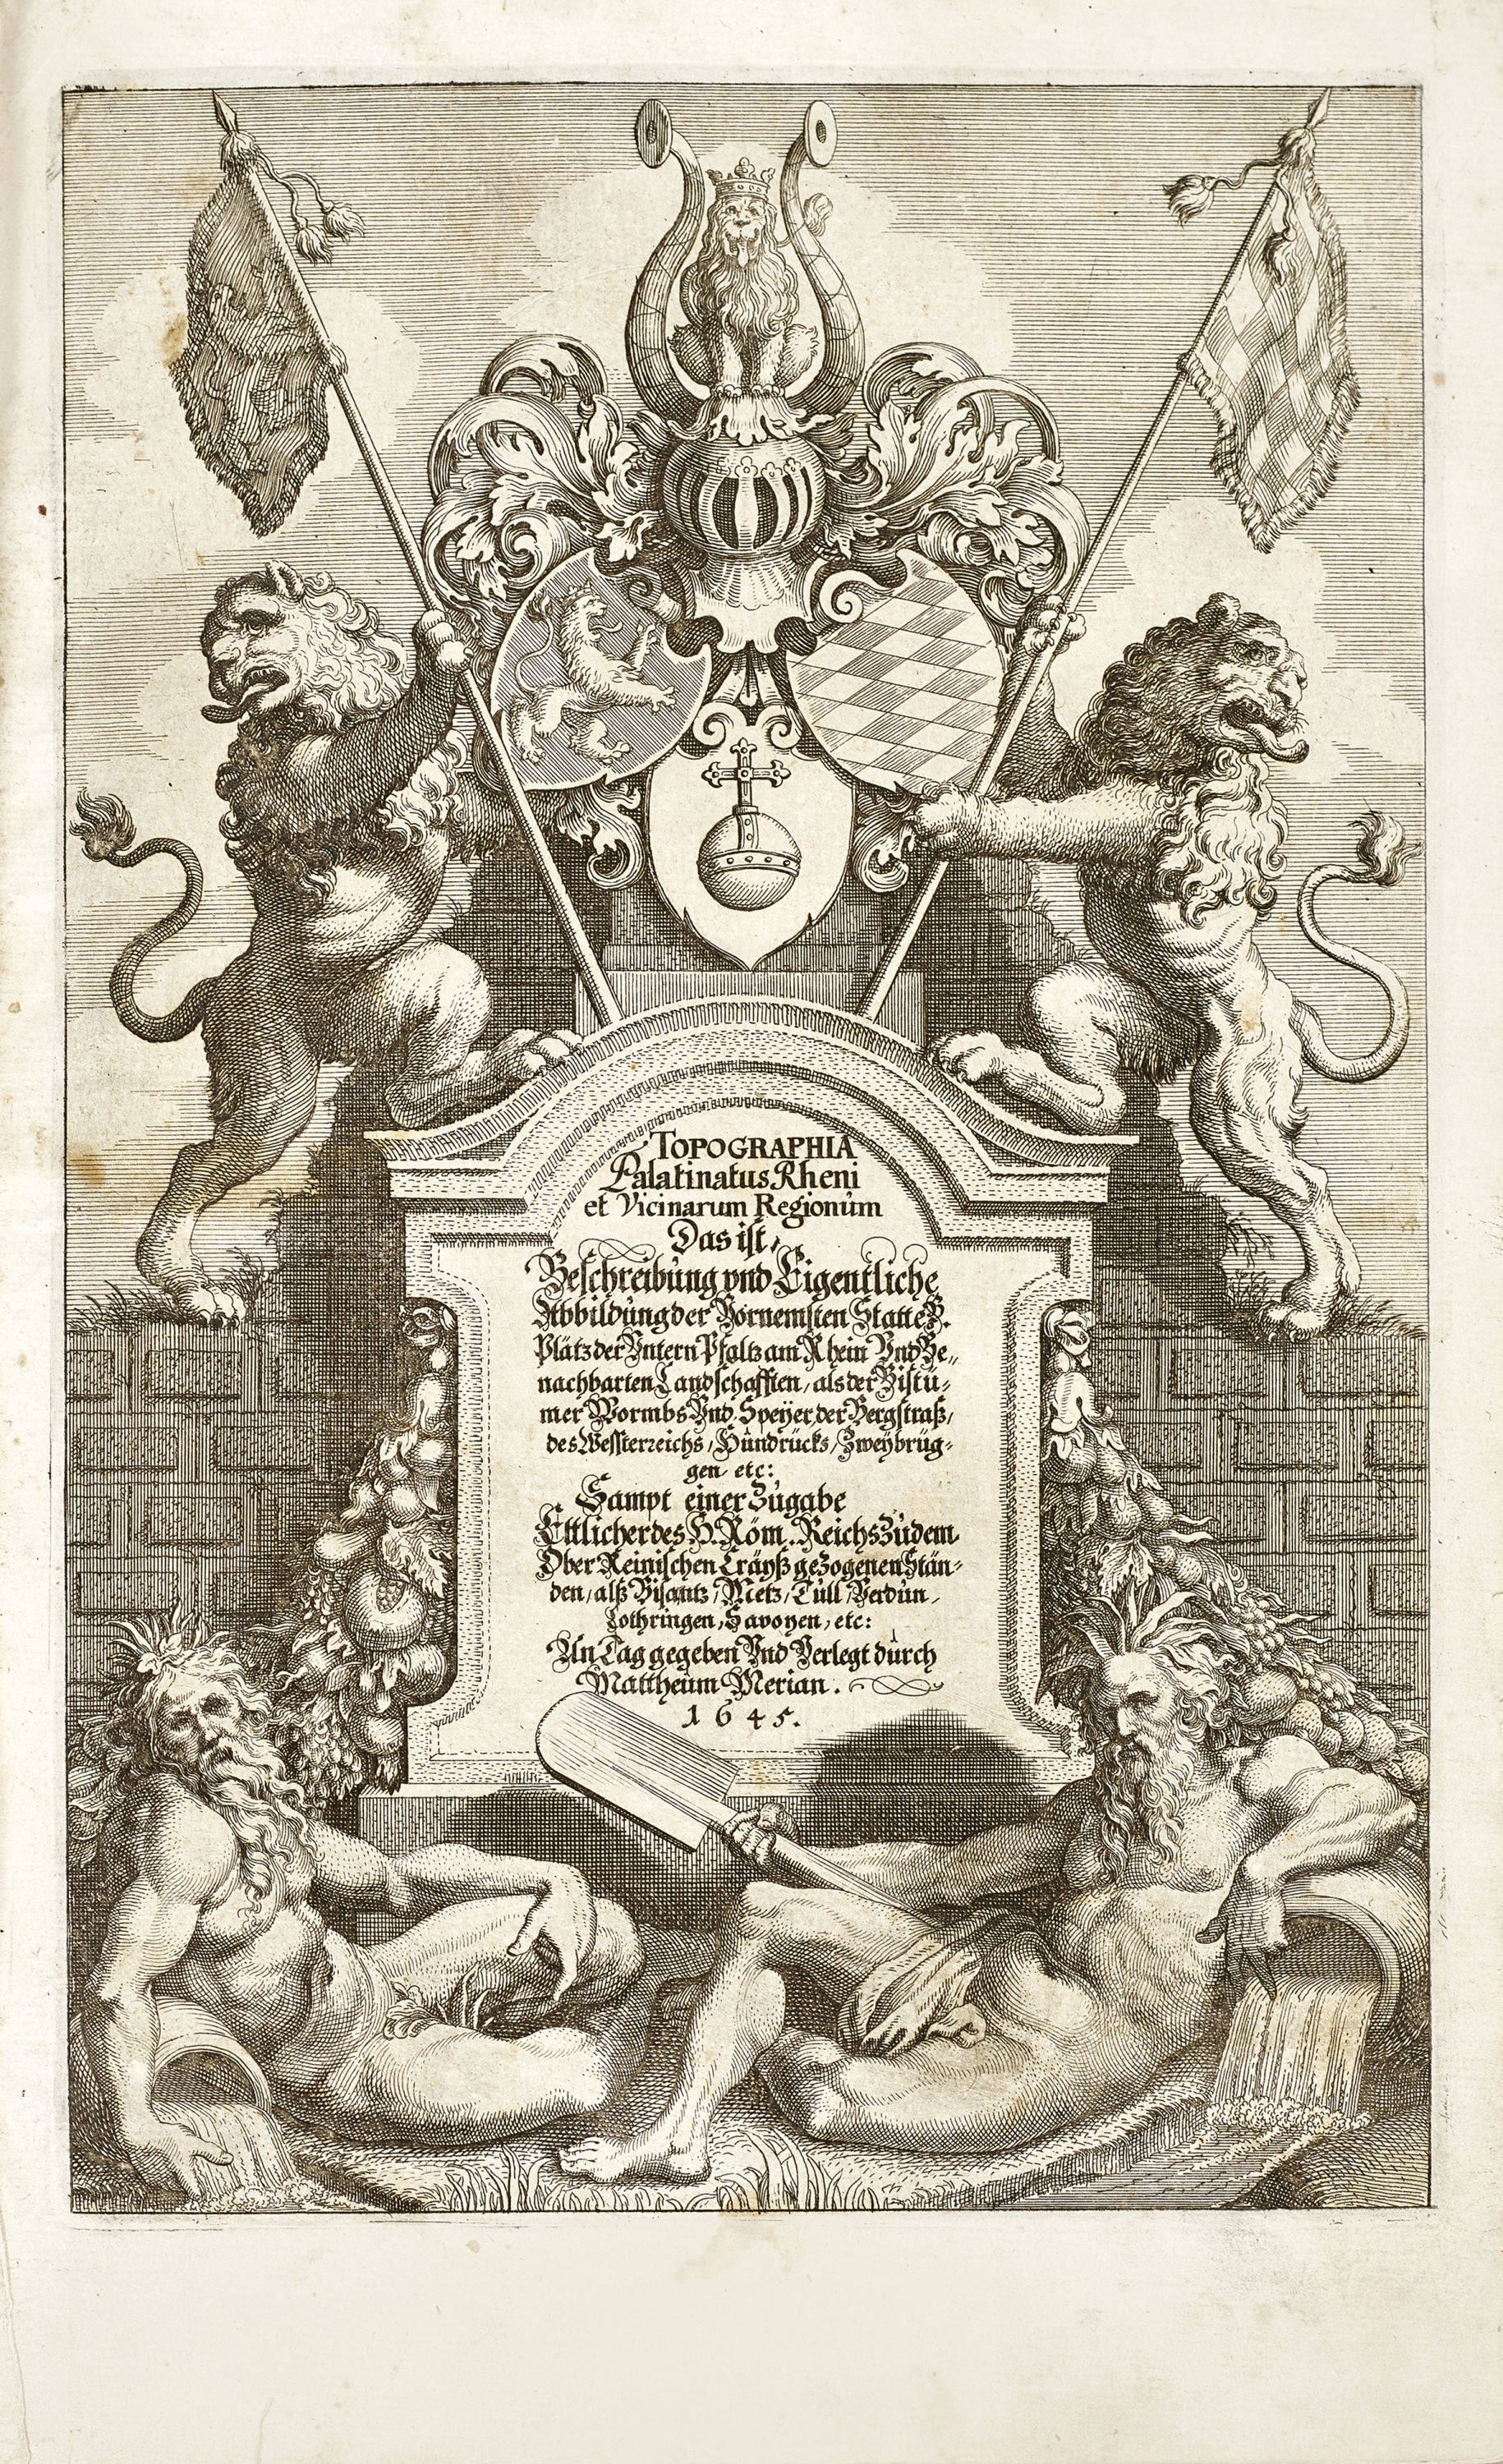 TOPOGRAPHIA
Palatinatus Rheni
et Vicinarum Regionum
Das ist,
Beschreibung vnd Eigentliche
Abbildung der Vornemsten Statte, V.
Plätz der Vntern Pfaltz am Rhein Vnd Be„
nachbarten Landschafften, als der Bistü-
mer Wormbs Vnd Speÿer, der Bergstraß,
des Wessterreichs, Hundrücks, Zweÿbrüg-
gen, etc:
Sampt einer Zugabe
Ettlicher des H. Röm. Reichs Zu dem
Ober Reinischen Cräyß gezogenen Stän-
den, alß Bisantz, Metz, Tull, Verdun,
Lothringen, Savoyen, etc:
An Tag gegeben Vnd Verlegt durch
Mattheum Merian.
1645.